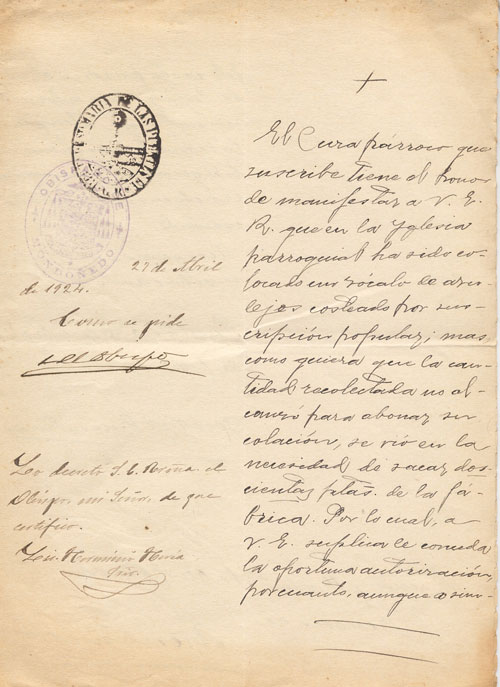 +
El Cura párroco que
suscribe tiene el honor
de manifestar a V. E.
R. que en la Yglesia
parroquial ha sido co-
locado un zócalo de azu-
lejos costeado por sus-
cripción popular; mas
como quiera que la can-
tidad recolectada no al-
canzó para abonar su
colación, se vió en la
necesidad de sacar dos-
cientas ptas. de la fá-
brica. Por lo cual, a
V. E. suplica le conceda
la oportuna autorización,
por cuanto, aunque o sim-
MARIA DE LAS
OBISPADO DE
MONDOÑEDO
27 de Abril
de 1924.
Como se pide
El Obispo
Lo decretó S. E. Rvma. el
Obispo, mi Señor, de que
certifico.
Lic.
Srio.